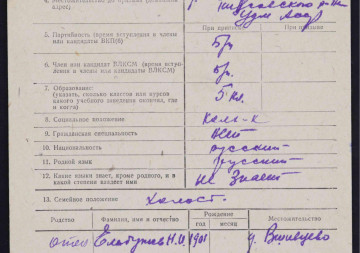 адрес)
Удм АССР
При приписке
5. Партийность (время вступления в члены или кандидаты ВКП(б)
б/п.
6. Член или кандидат ВЛКСМ (время вступления в члены или кандидаты ВЛКСМ)
б/р.
7. Образование:
(указать, сколько классов или курсов какого учебного заведения окончил, где и когда)
5 кл.
8. Социальное положение
колх-к
9. Гражданская специальность
нет
10. Национальность
русский
11. Родной язык
русский
12. Какие языки знает, кроме родного, и в какой степени владеет ими
не знает
13. Семейное положение
холост.
Родство
Фамилия, имя и отчество
Рождение
год
месяц
Местожительство
отец
Н.И.
1901
д.